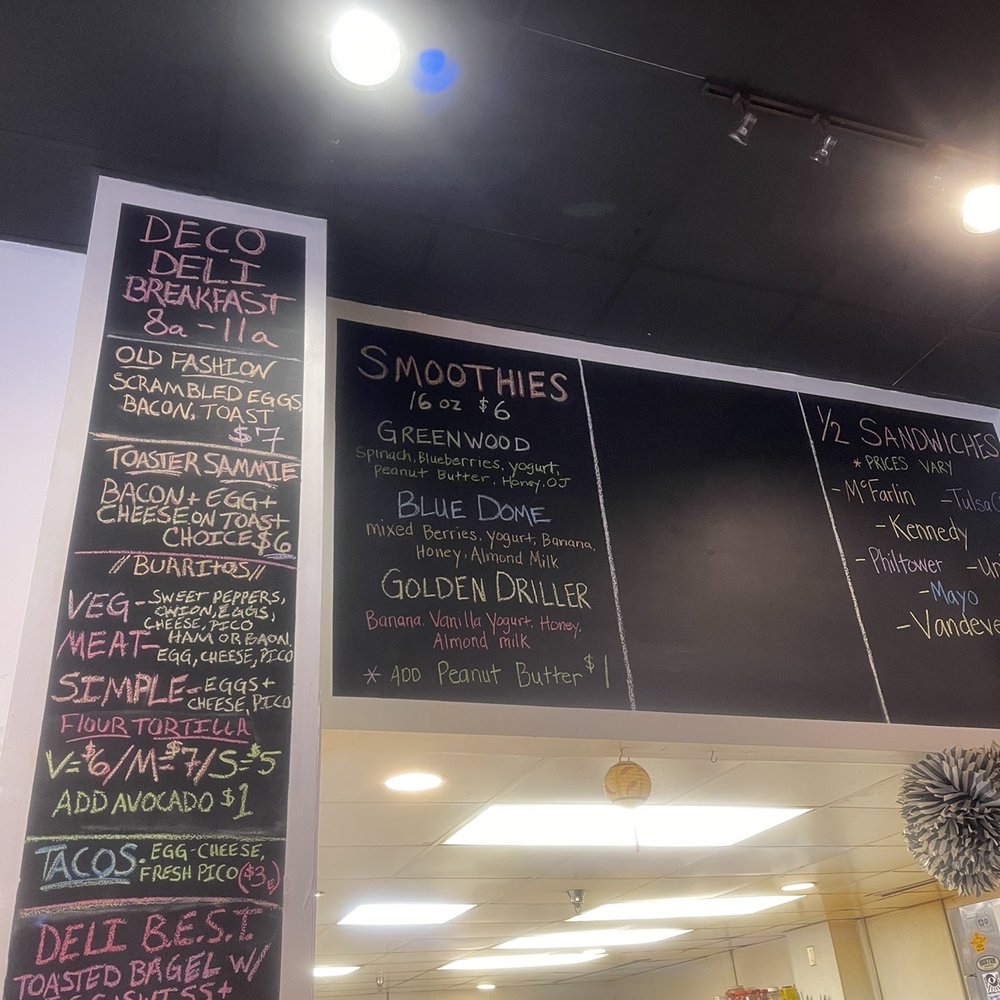 DECO
DELI
BREAKFAST
8a - 11a
OLD FASHION
SCRAMBLED EGGS,
BACON, TOAST
$7
TOASTER SAMMIE
BACON + EGG +
CHEESE ON TOAST
CHOICE $6
//BURRITOS//
VEG - SWEET PEPPERS,
ONION, EGGS,
CHEESE, PICO
MEAT - HAM OR BACON,
EGG, CHEESE, PICO
SIMPLE - EGGS +
CHEESE, PICO
FLOUR TORTILLA
V=$6/M=$7/S=$5
ADD AVOCADO $1
TACOS - EGG-CHEESE,
FRESH PICO ($3E)
DELI B.E.S.T
TOASTED BAGEL W/
SMOOTHIES
16 oz $6
GREENWOOD
Spinach, Blueberries, yogurt,
Peanut Butter, Honey, OJ
BLUE DOME
mixed Berries, Yogurt, Banana,
Honey, Almond Milk
GOLDEN DRILLER
Banana, Vanilla Yogurt, Honey,
Almond milk
* ADD Peanut Butter $1
1/2 SANDWICHES
* PRICES VARY
- McFarlin - Tulsa
- Kennedy
- Philtower - Un
- Mayo
- Vandeve